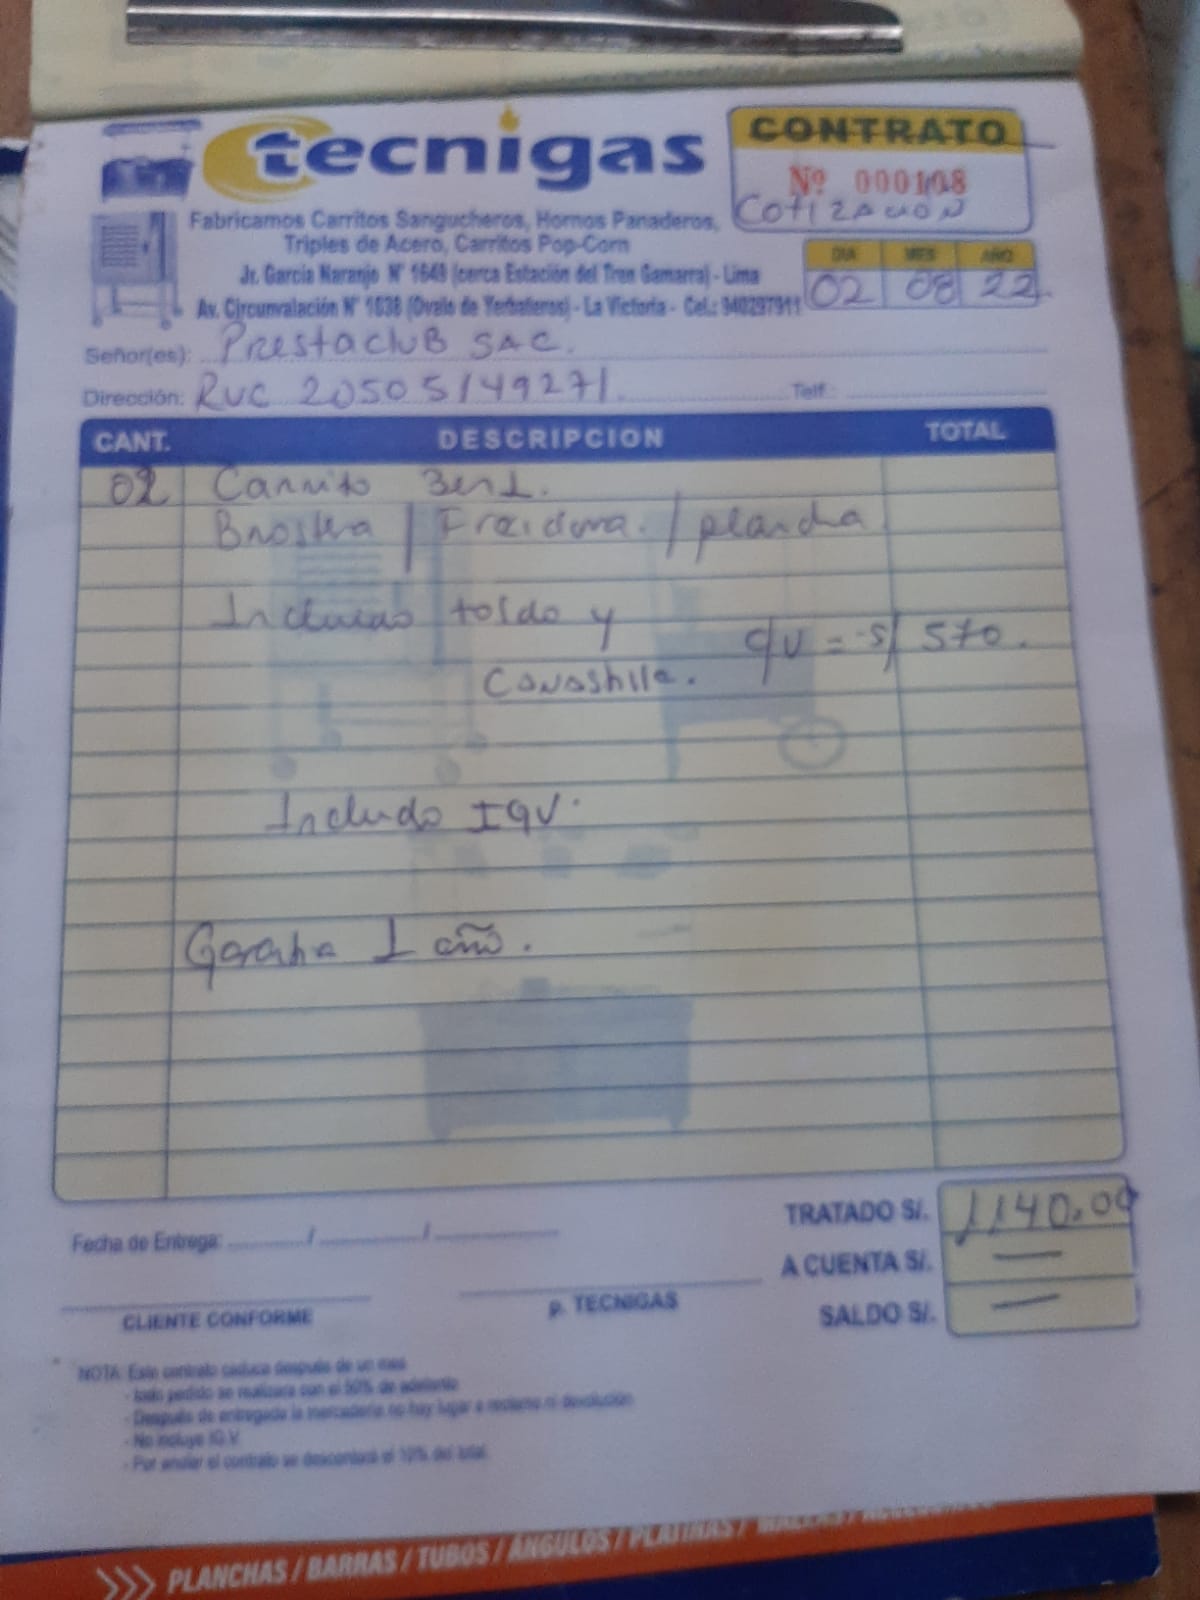 tecnigas
CONTRATO
Nº 000108
COTIZACION
Fabricamos Carritos Sangucheros, Hornos Panaderos,
Triples de Acero, Carritos Pop-Corn
Jr. García Naranjo Nº 1649 (cerca Estación del Tren Gamarra) - Lima
Av. Circunvalación Nº 1638 (Ovalo de Yerbateros) - La Victoria - Cel.: 940297911
DIA MES AÑO
02 08 22
Señor(es): Prestaclub SAC.
Dirección: RUC 20505149271. Telf.:
CANT. DESCRIPCION TOTAL
02 Carrito 3 en 1.
Broster / Freidora. / plancha
Incluido toldo y
Canastilla. c/u = S/ 570.
Incluido IGV.
Garantia 1 año.
TRATADO S/. 1140.00
Fecha de Entrega: / /
A CUENTA S/. —
SALDO S/. —
CLIENTE CONFORME
p. TECNIGAS
NOTA: Este contrato caduca después de un mes
- todo pedido se realizara con el 50% de adelanto
- Después de entregada la mercadería no hay lugar a reclamo ni devolución
- No incluye I.G.V.
- Por anular el contrato se descontará el 10% del total.
>>> PLANCHAS / BARRAS / TUBOS / ÁNGULOS / PLATINAS /